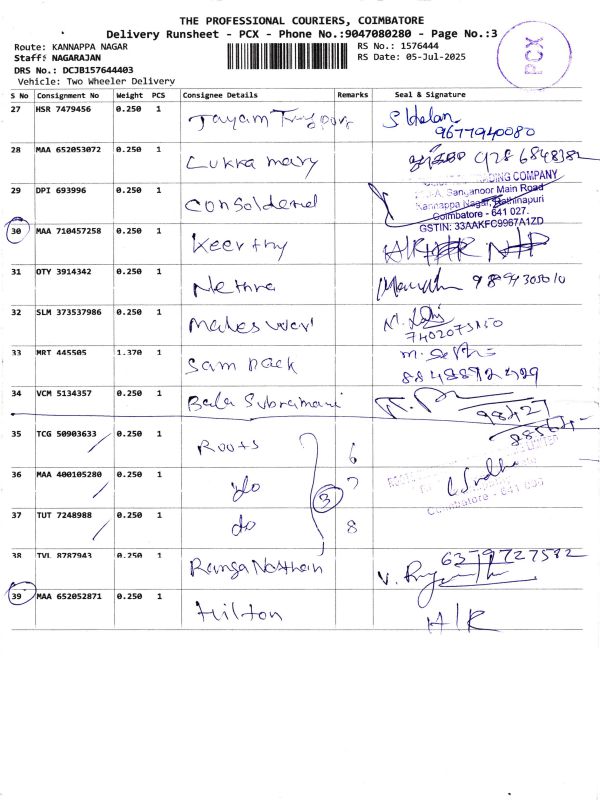 THE PROFESSIONAL COURIERS, COIMBATORE
Delivery Runsheet - PCX - Phone No.:9047080280 - Page No.:3
Route: KANNAPPA NAGAR
RS No.: 1576444
Staff: NAGARAJAN
RS Date: 05-Jul-2025
DRS No.: DCJB157644403
Vehicle: Two Wheeler Delivery
PCX
S No Consignment No Weight PCS Consignee Details Remarks Seal & Signature
27 HSR 7479456 0.250 1 Jayam
9677940080
28 MAA 652053072 0.250 1 Lukka mary
29 DPI 693996 0.250 1
TRADING COMPANY
Sanganoor Main Road
Kannappa Nagar, Rathinapuri
Coimbatore - 641 027.
GSTIN: 33AAKFC9967A1ZD
30 MAA 710457258 0.250 1 Keerthy
31 OTY 3914342 0.250 1 Nethra
32 SLM 373537986 0.250 1
33 MRT 445505 1.370 1 Sam pack
34 VCM 5134357 0.250 1 Bala Subramani
35 TCG 50903633 0.250 1 Roots 6
36 MAA 400105280 0.250 1 do 7
3
Coimbatore - 641
37 TUT 7248988 0.250 1 do 8
38 TVL 8787943 0.250 1 Ranga Nathan
6379727582
39 MAA 652052871 0.250 1 Hilton
H/R